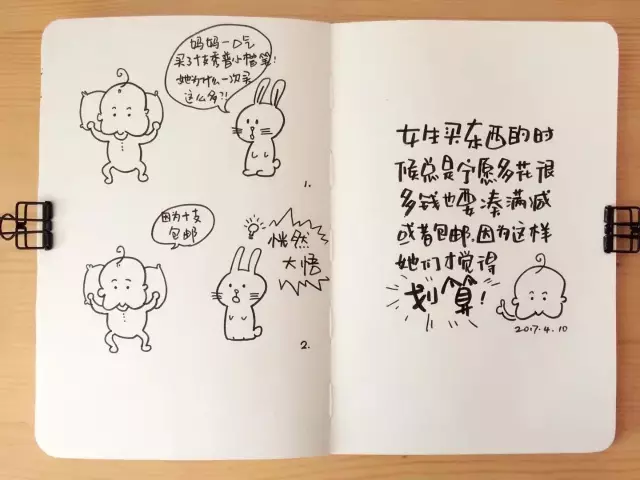 妈妈一口气
买了十支秀普小楷笔!
她为什么一次买
这么多?!
1.
因为十支
包邮
恍然
大悟
2.
女生买东西的时
候总是宁愿多花很
多钱也要凑满减
或者包邮.因为这样
她们才觉得
划算!
2017.4.10